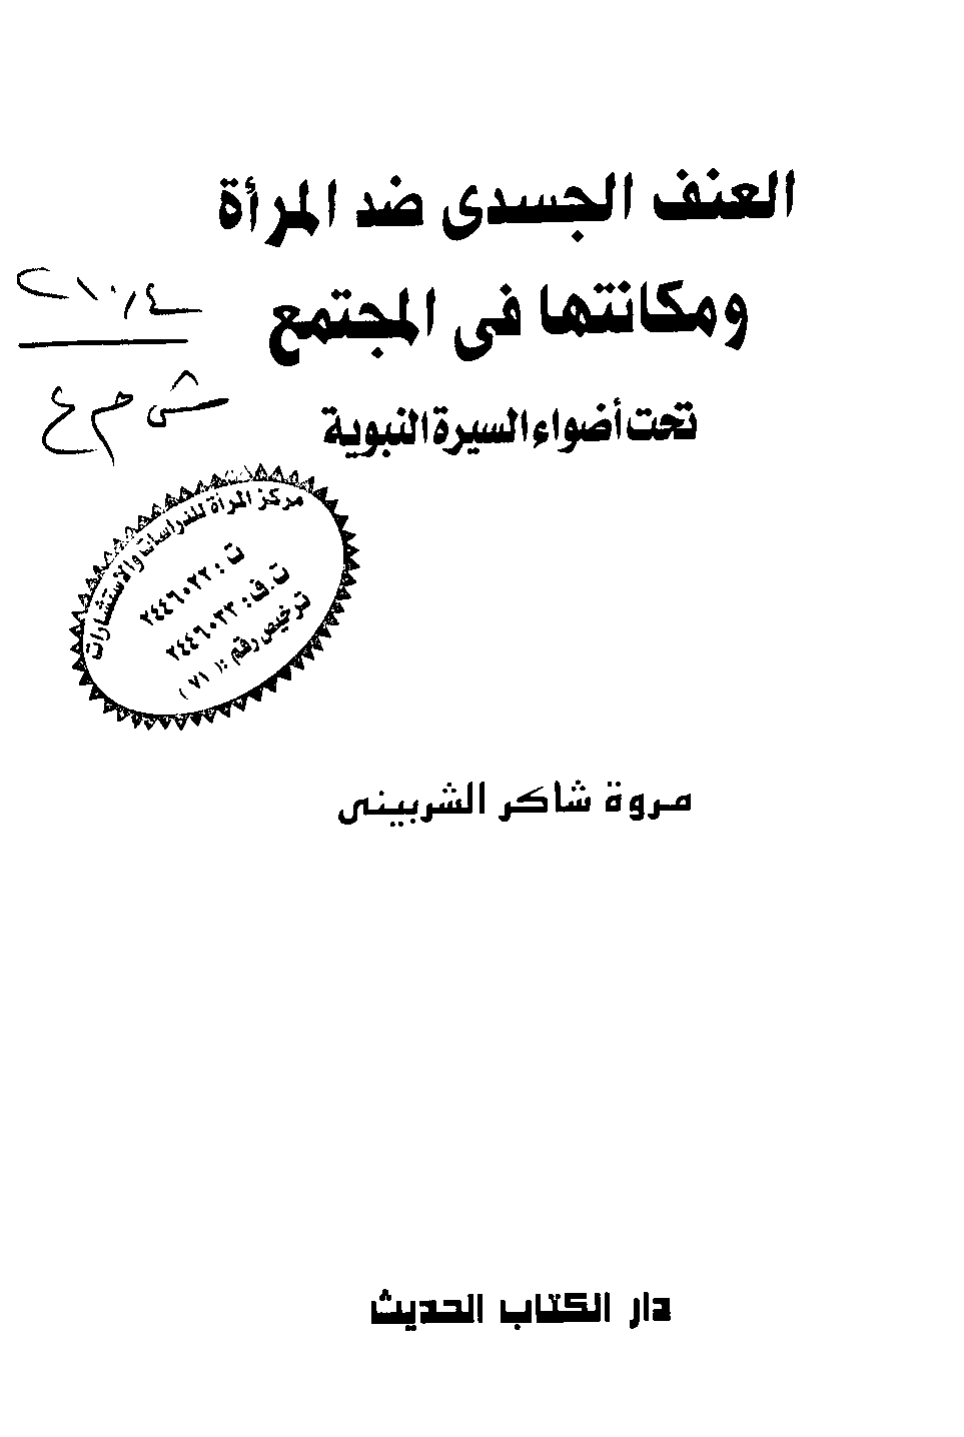 العنف الجسدى ضد المرأة
ومكانتها فى المجتمع
تحت أضواء السيرة النبوية
ش م ع
مركز المرأة للدراسات والاستشارات
ت : ٢٤٤٦٠٢٢
ت.ف : ٢٤٤٦٠٣٣
ترخيص رقم : ( ٧١ )
مروة شاكر الشربينى
دار الكتاب الحديث